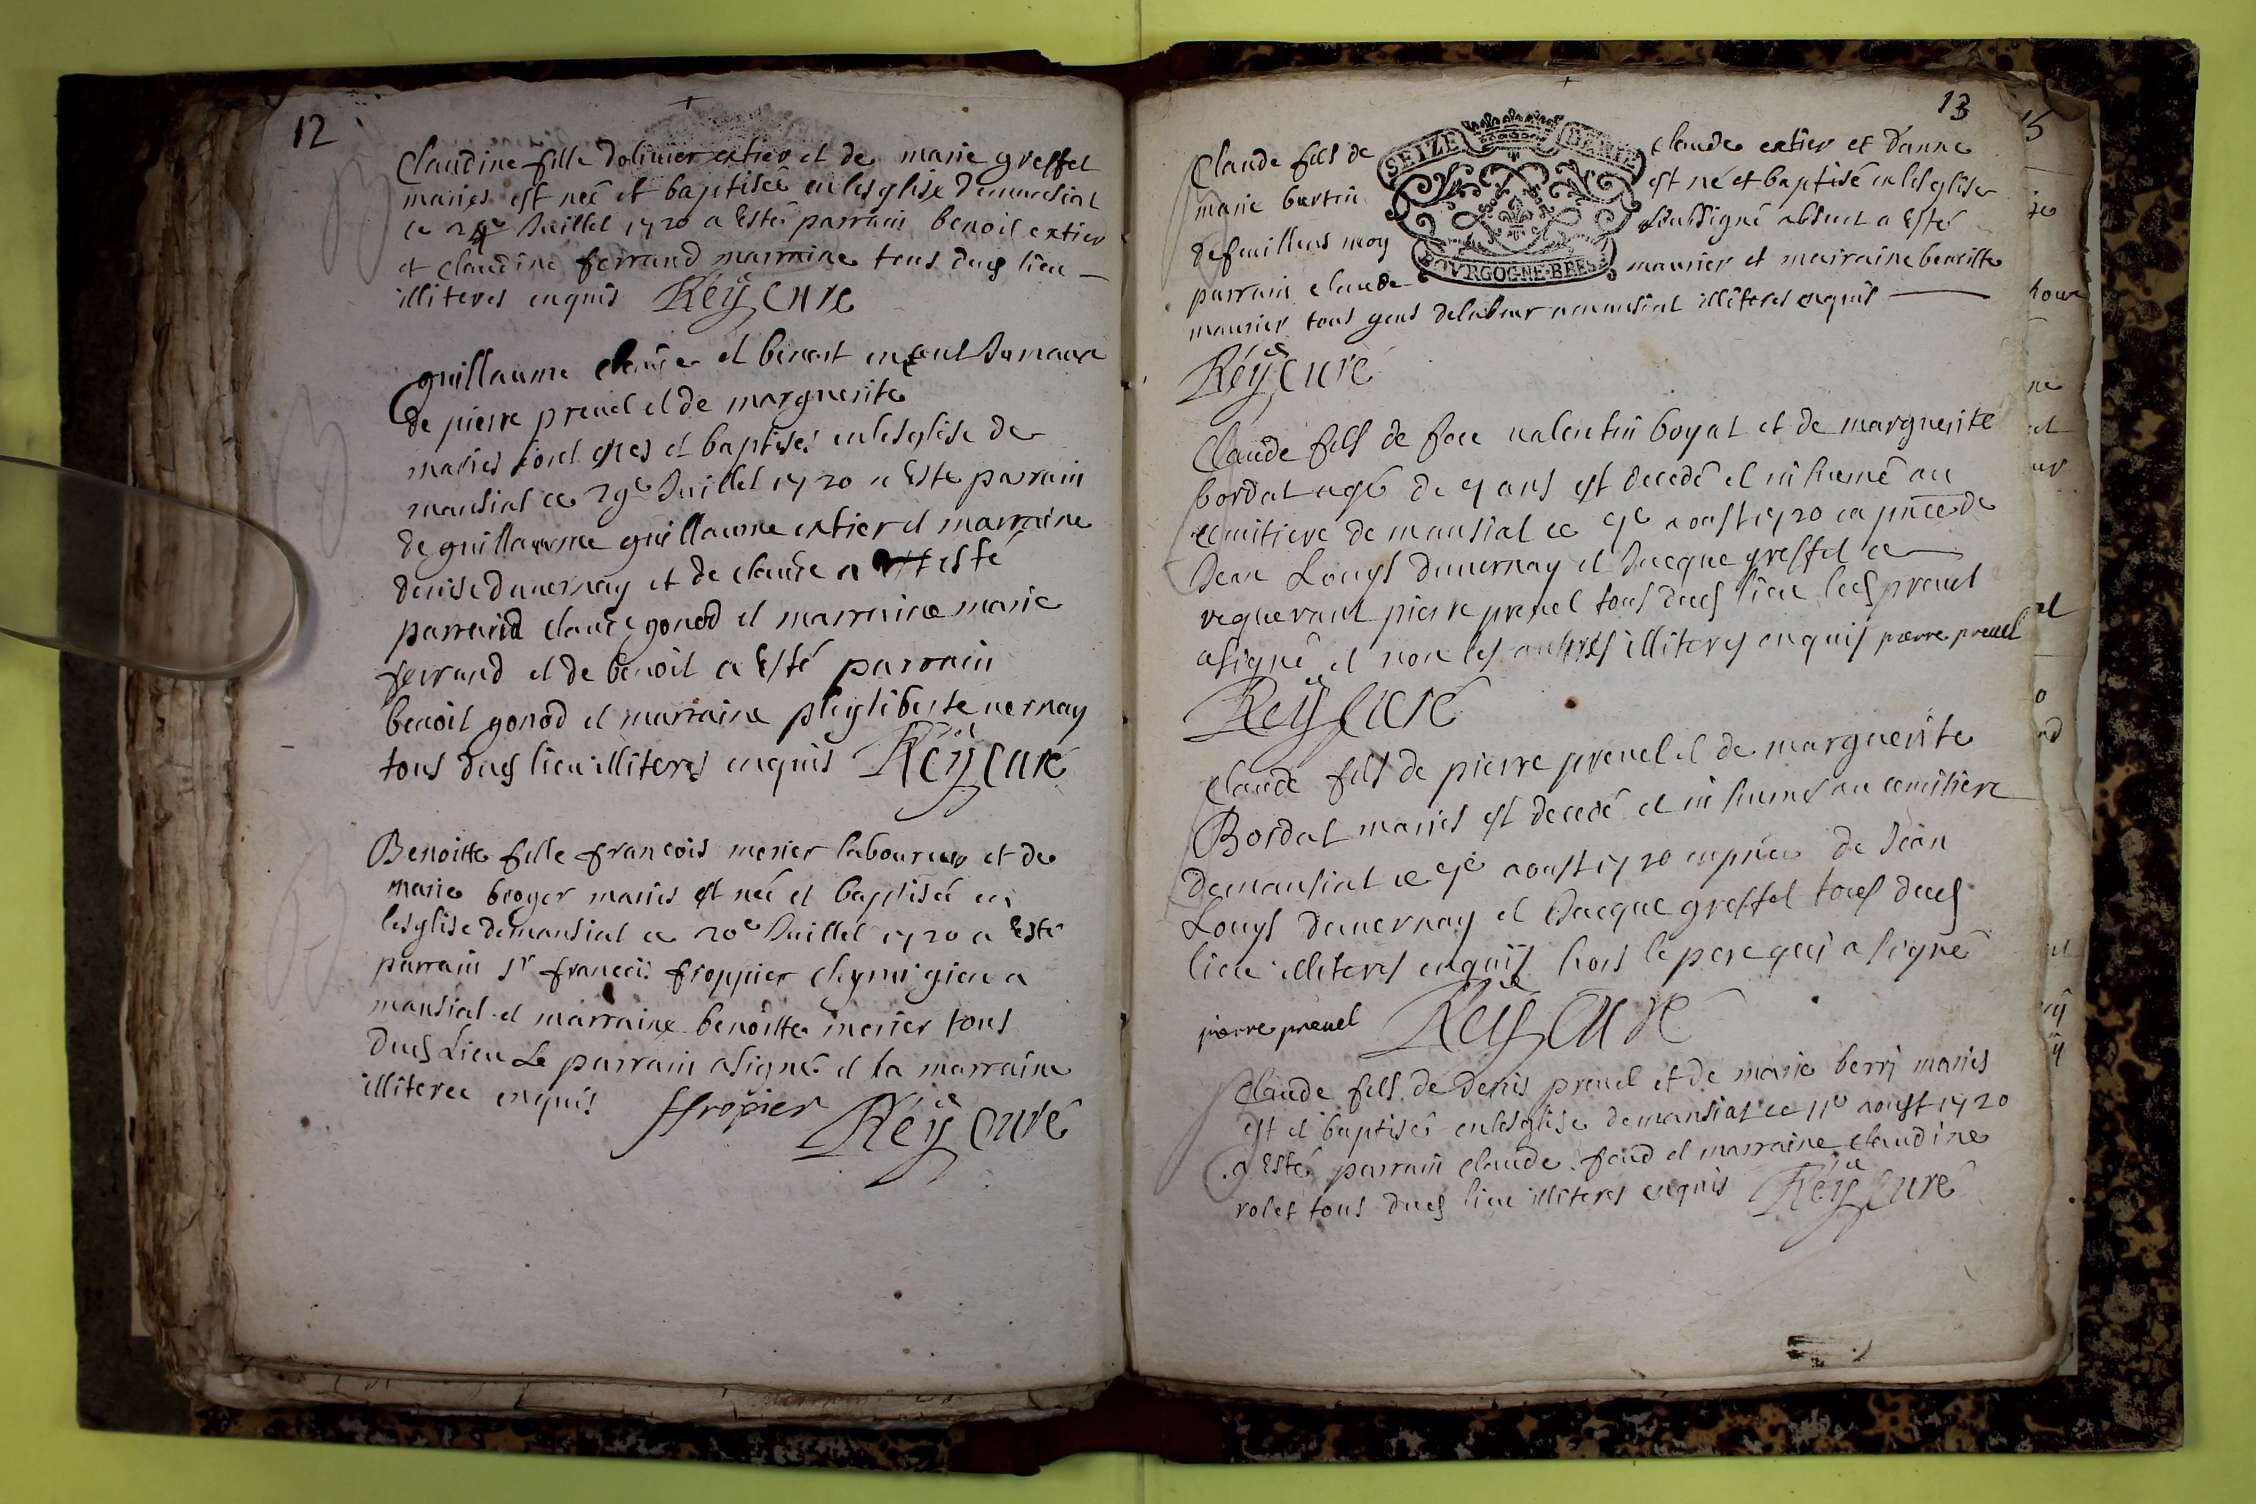 12
Claudine fille dolivier extier et de marie greffet
maries est neé et baptiseé en lesglise de mansiat
ce Juillet 1720 a Esté parrain benoit extier
et claudine ferrand marraine tous duds lieu
illiteres enquis Reÿ curé
guillaume claude et benoit
de pierre prevel et de marguerite
maries sont nes et baptises en lesglise de
mansiat ce 29e Juillet 1720 a Esté parrain
de guillaume guillaume extier et marraine
denise duvernay et de claude a esté
parraind claude gonod et marraine marie
ferrand et de benoit a Esté parrain
benoit gonod et marraine phyliberte vernay
tous duds lieu illiteres enquis Reÿ curé
Benoitte fille francois merier laboureur et de
marie broyer maries est neé et baptiseé en
lesglise de mansiat ce 20e Juillet 1720 a Esté
parrain Sr francois froppier chyrurgien a
mansiat et marraine benoitte merier tous
duds Lieu Le parrain a signé et la marraine
illiteree enquis ffropier Reÿ curé
13
SEIZE DENIE
BOVRGOGNE·BRESSE
Claude fils de claude extier et danne
marie burtin est né et baptisé en lesglise
de feuillens moy soussigné absent a Esté
parrain claude maurier et mairaine benoitte
maurier tous gens de labeur a mansiat illiteres enquis
Reÿ curé
Claude fils de feu valentin boyat et de marguerite
bordat agé de ans est decedé et inhumé au
cemitiere de mansiat ce aoust 1720 en pnce de
Jean Louys duvernay et Jacque greffet ce
requerant pierre prevel tous duds lieu leds prevel
a signé et non les autres illiteres enquis pierre prevel
Reÿ curé
Claude fils de pierre prevel et de marguerite
Bordat maries est decedé et inhumé au cemitiere
de mansiat ce aoust 1720 en pnce de Jean
Louys duvernay et Jacque greffet tous duds
lieu illiteres enquis hors le pere qui a signé
pierre prevel Reÿ curé
Claude fils de denis prevel et de marie berry maries
est et baptisé en lesglise de mansiat ce 11e aoust 1720
a Esté parrain claude feud et marraine claudine
rolet tous duds lieu illiteres enquis Reÿ curé